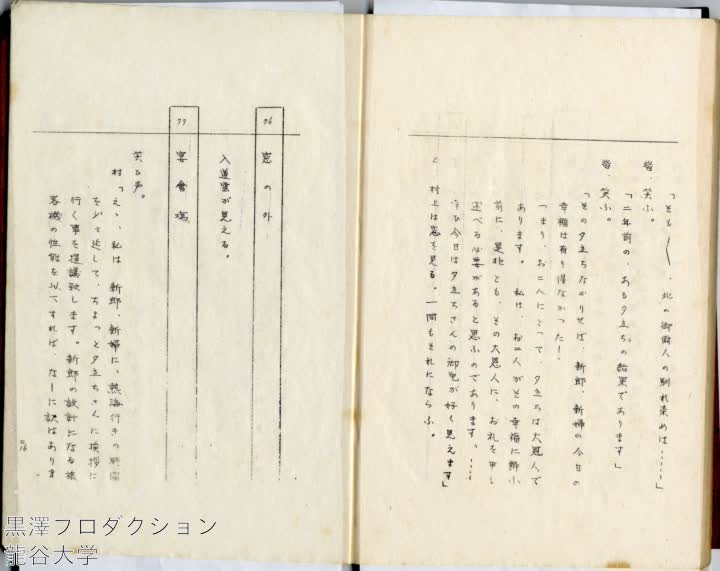 「そも〱、此の御両人の馴れ染めは……」
皆、笑ふ。
「二年前の、ある夕立ちの結果であります」
皆、笑ふ。
「その夕立ちなかりせば、新郎、新婦の今日の
幸福は有り得なかった！
つまり、お二人にとって、夕立ちは大恩人で
あります。私は、お二人がその幸福に酔ふ
前に、是非とも、その大恩人に、お礼を申し
述べる必要があると思ふのであります。……
幸ひ今日は夕立ちさんの御宅が好く見えます」
と、村上は窓を見る。一同もそれにならふ。
76 窓の外
入道雲が見える。
77 宴會場
笑ひ声。
村「えゝ、私は、新郎、新婦に、熱海行きの時間
を少々延して、ちょっと夕立ちさんに挨拶に
行く事を提議致します。新郎の設計になる旅
客機の性能を以てすれば、なーに訳はありま
黒澤プロダクション
龍谷大学